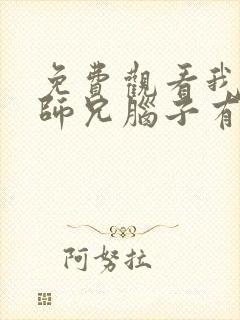 免費觀看我
師兄腦子有
阿努拉